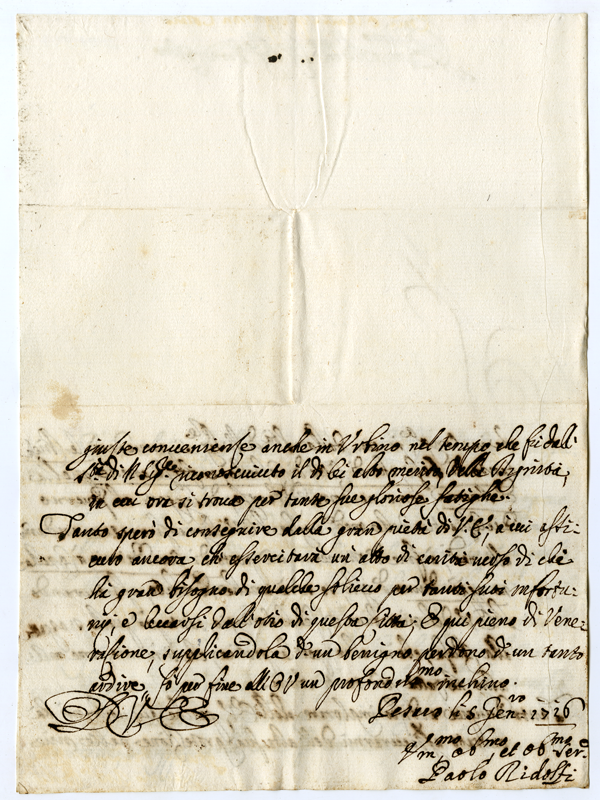 giuste convenienze anche in Urbino nel tempo che fù dall'
S.tà di N. Sig.re riconosciuto il di lei alto merito, della dignità,
in cui ora si trova per tante sue gloriose fatighe.
Tanto sperò di conseguire dalla gran pietà di V. E., a cui assi-
curo ancora che essercitarà un' atto di carità verso di chi
hà gran bisogno di qualche sollievo per tanti suoi infortu-
nÿ, e levarsi dall' otio di questa Città; E qui pieno di Vene-
ratione, supplicandola d' un benigno perdono d' un tanto
ardire, fò per fine all' E V un profondiss.mo inchino.
D V E
Pesaro li 5 Gen.ro 1716
Um.mo et Ob.mo Ser.
Paolo Ridolfi